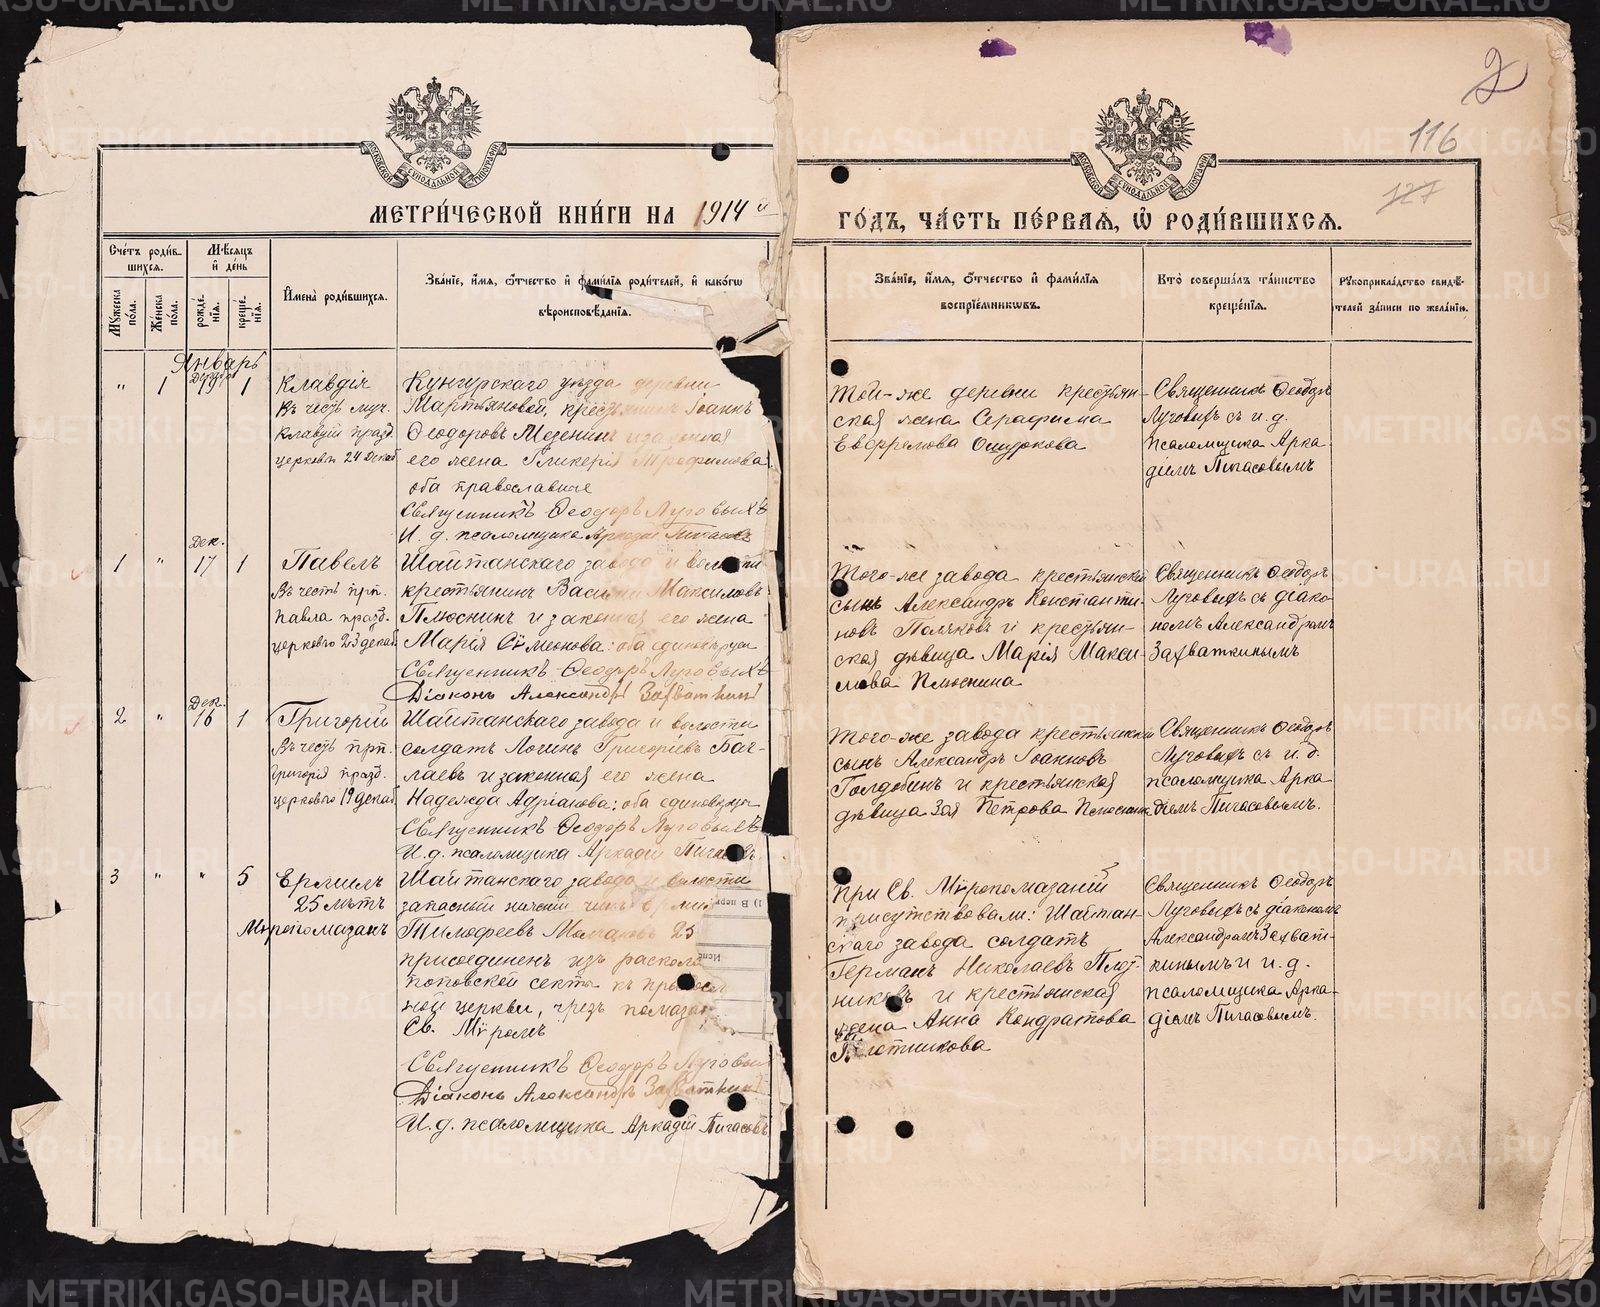 МЕТРИ́ЧЕСКОЙ КНИ́ГИ НА 1914 й
ГО́ДЪ, ЧА́СТЬ ПЕ́РВАѦ, Ѡ҆ РОДИ́ВШИХСѦ.
2
116
127
МОСКОВСКОЙ СѴНОДАЛЬНОЙ ТИПОГРАФІИ
МОСКОВСКОЙ СѴНОДАЛЬНОЙ ТИПОГРАФІИ
Сче́тъ роди́вшихсѧ.
Мꙋ́жеска по́ла.
Же́нска по́ла.
Мѣ́сѧцъ и҆ де́нь
рожде́нїѧ.
креще́нїѧ.
И҆мена̀ роди́вшихсѧ.
Зва́нїе, и҆́мѧ, ѻ҆́тчество и҆ фами́лїѧ роди́телей, и҆ како́гѡ
вѣроисповѣ́данїѧ.
Зва́нїе, и҆́мѧ, ѻ҆́тчество и҆ фами́лїѧ
воспрїе́мникѡвъ.
Кто̀ соверша́лъ та́инство
креще́нїѧ.
Рꙋкоприкла́дство свидѣ́телей за́писи по жела́нїю.
Январь
" 1 Декабр. 19 1
Клавдія
Въ честь муч.
Клавдіи празд.
церковью 24 Декаб
Кунгурскаго уѣзда деревни
Мартьяновой, крестьянинъ Іоаннъ
Ѳеодоровъ Мезенинъ и законная
его жена Гликерія Трофимова
оба православные
Священникъ Ѳеодоръ Луговыхъ
И. д. псаломщика Аркадій Пигасовъ
Той-же деревни крестьян-
ская жена Серафима
Евфремова Ошуркова
Священникъ Ѳеодоръ
Луговыхъ съ и. д.
псаломщика Арка-
діемъ Пигасовымъ
1 " Дек. 17 1
Павелъ
Въ честь прп.
Павла празд.
церковью 23 декаб
Шайтанскаго завода и волости
крестьянинъ Василій Максимовъ
Плюснинъ и законная его жена
Марія Сѵмеонова: оба единовѣрцы
Священникъ Ѳеодоръ Луговыхъ
Діаконъ Александръ Захваткинъ
Того-же завода крестьянскій
сынъ Александръ Константи-
новъ Поляковъ и крестьян-
ская дѣвица Марія Макси-
мова Плюснина
Священникъ Ѳеодоръ
Луговыхъ съ діако-
номъ Александромъ
Захваткинымъ
2 " Дек. 16 1
Григорій
Въ честь прп.
Григорія празд.
церковью 19 декаб
Шайтанскаго завода и волости
солдатъ Логинъ Григоріевъ Баг-
лаевъ и законная его жена
Надежда Адріанова: оба единовѣрцы
Священникъ Ѳеодоръ Луговыхъ
И. д. псаломщика Аркадій Пигасовъ
Того-же завода крестьянскій
сынъ Александръ Іоанновъ
Голдобинъ и крестьянская
дѣвица Зоя Петрова Плюснина
Священникъ Ѳеодоръ
Луговыхъ съ и. д.
псаломщика Арка-
діемъ Пигасовымъ.
3 " " 5
Ермилъ
25 лѣтъ
Мѵропомазанъ
Шайтанскаго завода и волости
запасный нижній чинъ Ермилъ
Тимофеевъ 25
присоединенъ изъ раскола
поповской секты къ правосл
ной церкви, чрезъ помазан
Св. Мѵромъ
Священникъ Ѳеодоръ Луговыхъ
Діаконъ Александръ Захваткинъ
И. д. псаломщика Аркадій Пигасовъ
При Св. Мѵропомазаніи
присутствовали: Шайтан-
скаго завода солдатъ
Германъ Николаевъ Плот-
никовъ и крестьянская
жена Анна Кондратова
Плотникова
Священникъ Ѳеодоръ
Луговыхъ съ діакономъ
Александромъ Захват-
кинымъ и и. д.
псаломщика Арка-
діемъ Пигасовымъ.
1) В пер
METRIKI.GASO-URAL.RU